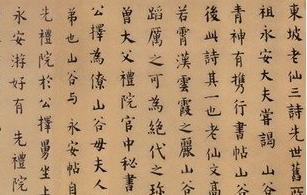 東坡老仙三詩先世舊
祖永安大夫嘗謁山
青神有携行書帖山
後此詩其一也老仙文
若霄漢雲霞之麗山谷
蹈厲之可為絕代之珎
曾大父禮院官中秘書
公擇為僚山谷母夫人
弟也山谷与永安帖自
先禮院於公擇舅坐上
永安游好有先禮院